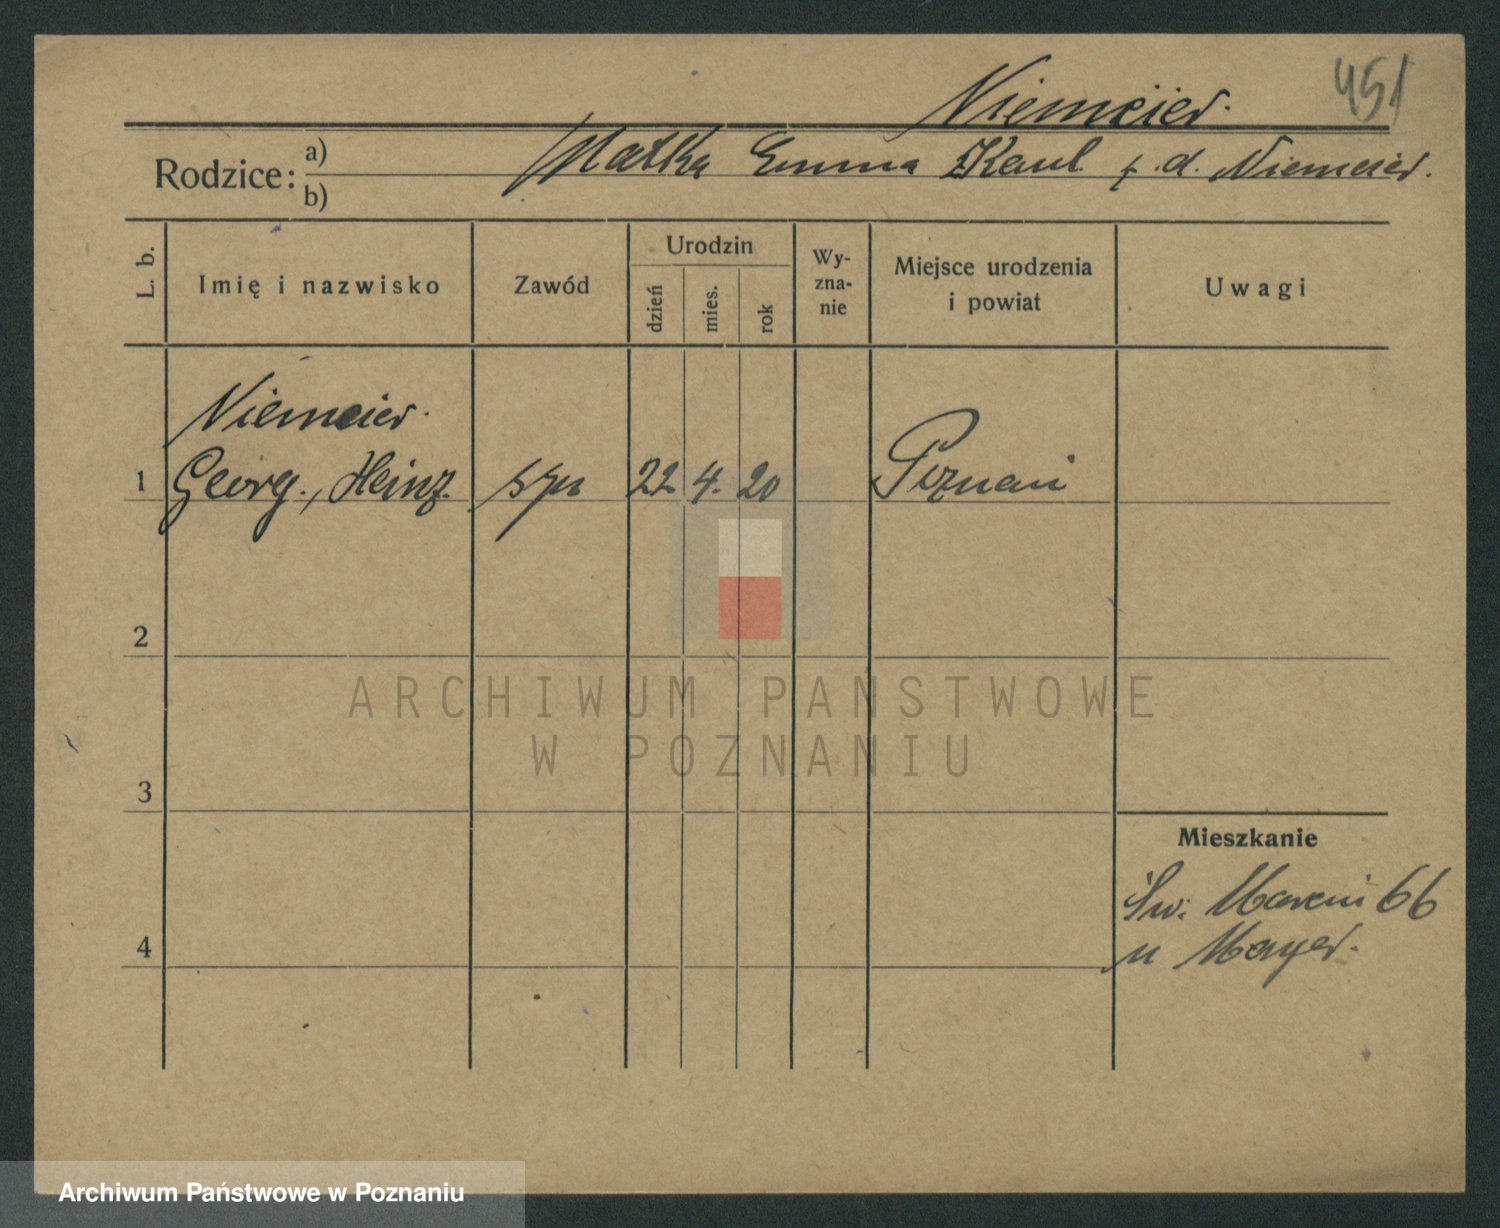 451
Niemeier.
Rodzice: a) Matka Emma Kaul z. d. Niemeier.
b)
L. b.
Imię i nazwisko
Zawód
Urodzin
dzień
mies.
rok
Wy-
zna-
nie
Miejsce urodzenia
i powiat
Uwagi
Niemeier.
1 Georg., Heinz. syn 22 4. 20 Poznań
2
3
4
Mieszkanie
Św. Marcin 66
u Mayer.
ARCHIWUM PAŃSTWOWE
W POZNANIU
Archiwum Państwowe w Poznaniu